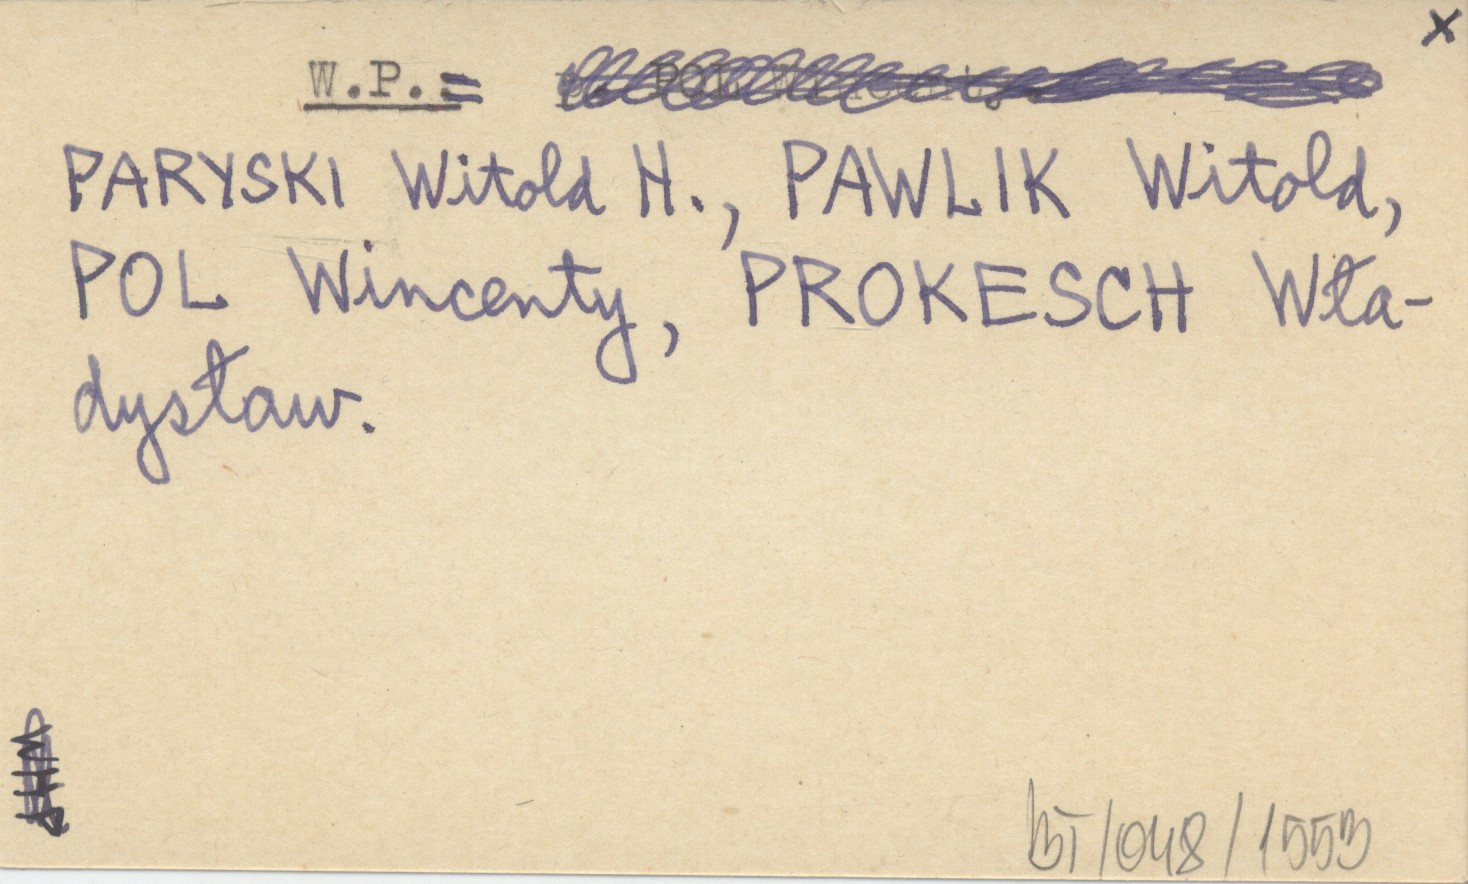 W.P. =
PARYSKI Witold H., PAWLIK Witold,
POL Wincenty, PROKESCH Wła-
dysław.
BT/048/1553